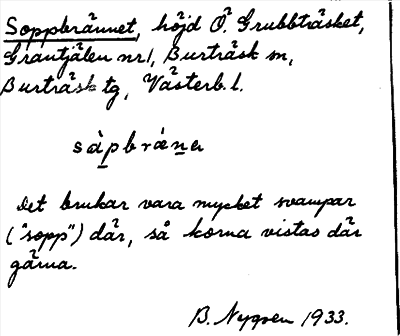 Soppbrännet, höjd Ö. Grubbträsket,
Grantjälen nr1, Burträsk sn,
Burträsk tg, Västerb. l.
sàpbrǽna
Det brukar vara mycket svampar
("sopp") där, så korna vistas där
gärna.
B. Nygren 1933.